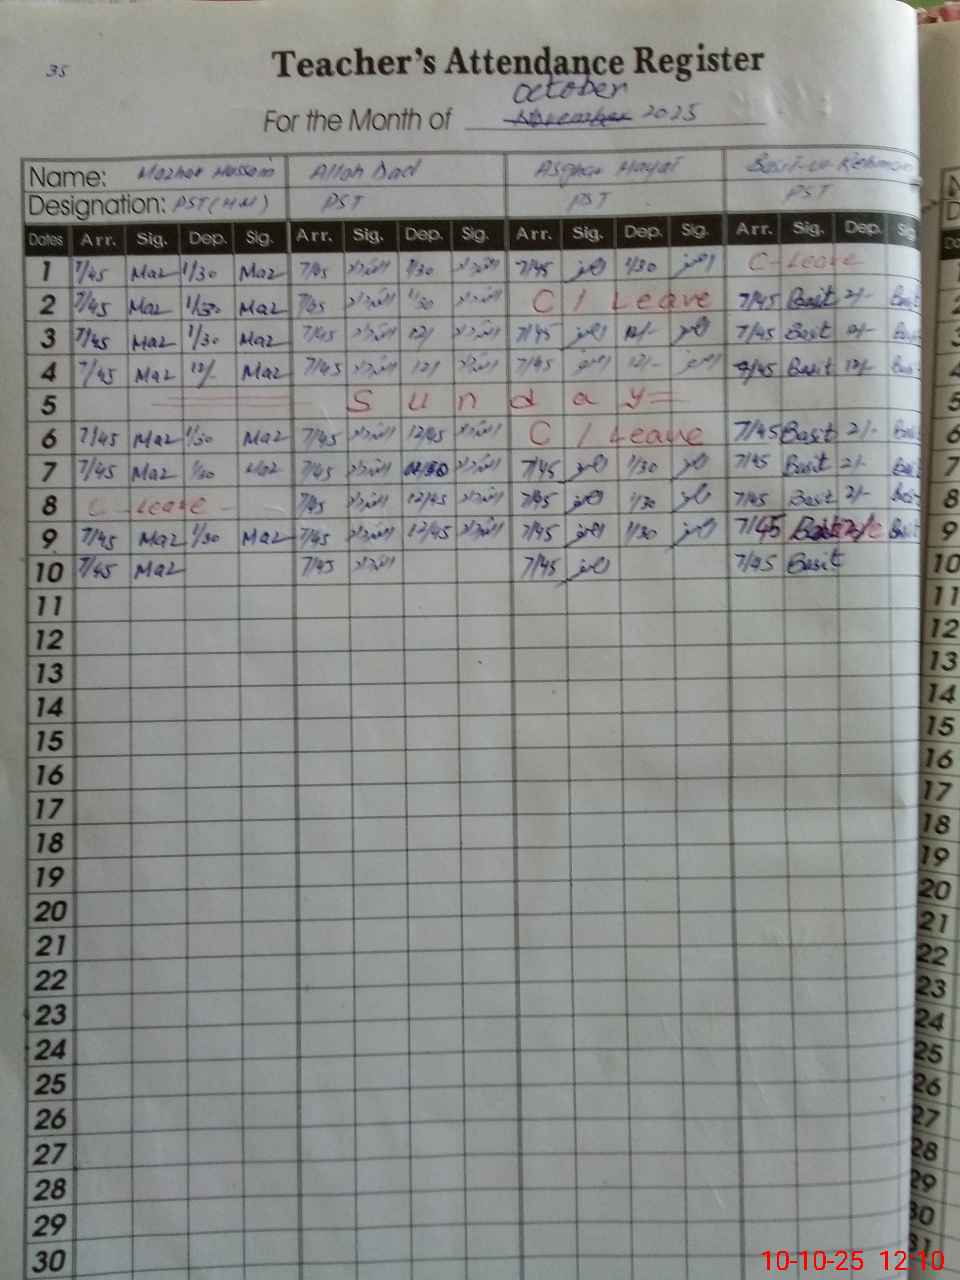 35
Teacher's Attendance Register
October
For the Month of November 2025
Name: Mazhar Hussain Allah Dad Asghar Hayat Basit-ur-Rehman
Designation: PST(HM) PST PST PST
Dates Arr. Sig. Dep. Sig. Arr. Sig. Dep. Sig. Arr. Sig. Dep. Sig. Arr. Sig. Dep. Sig
1 7/45 Maz 1/30 Maz 7/45 1/30 7/45 1/30 C-Leave
2 7/45 Maz 1/30 Maz 7/45 1/30 C / Leave 7/45 Basit 2/- Basit
3 7/45 Maz 1/30 Maz 7/45 12/ 7/45 12/- 7/45 Basit 12/- Basit
4 7/45 Maz 12/- Maz 7/45 12/ 7/45 12/- 7/45 Basit 12/- Basit
5 Sunday
6 7/45 Maz 1/30 Maz 7/45 12/45 C / Leave 7/45 Basit 2/- Basit
7 7/45 Maz 1/30 Maz 7/45 7/45 1/30 7/45 Basit 2/- Basit
8 C-Leave 7/45 12/45 7/45 1/30 7/45 Basit 2/- Basit
9 7/45 Maz 1/30 Maz 7/45 12/45 7/45 1/30 7/45 Basit
10 7/45 Maz 7/45 7/45 7/45 Basit
11
12
13
14
15
16
17
18
19
20
21
22
23
24
25
26
27
28
29
30
1
2
3
4
5
6
7
8
9
10
11
12
13
14
15
16
17
18
19
20
21
22
23
24
25
26
27
28
29
30
31
10-10-25 12:10